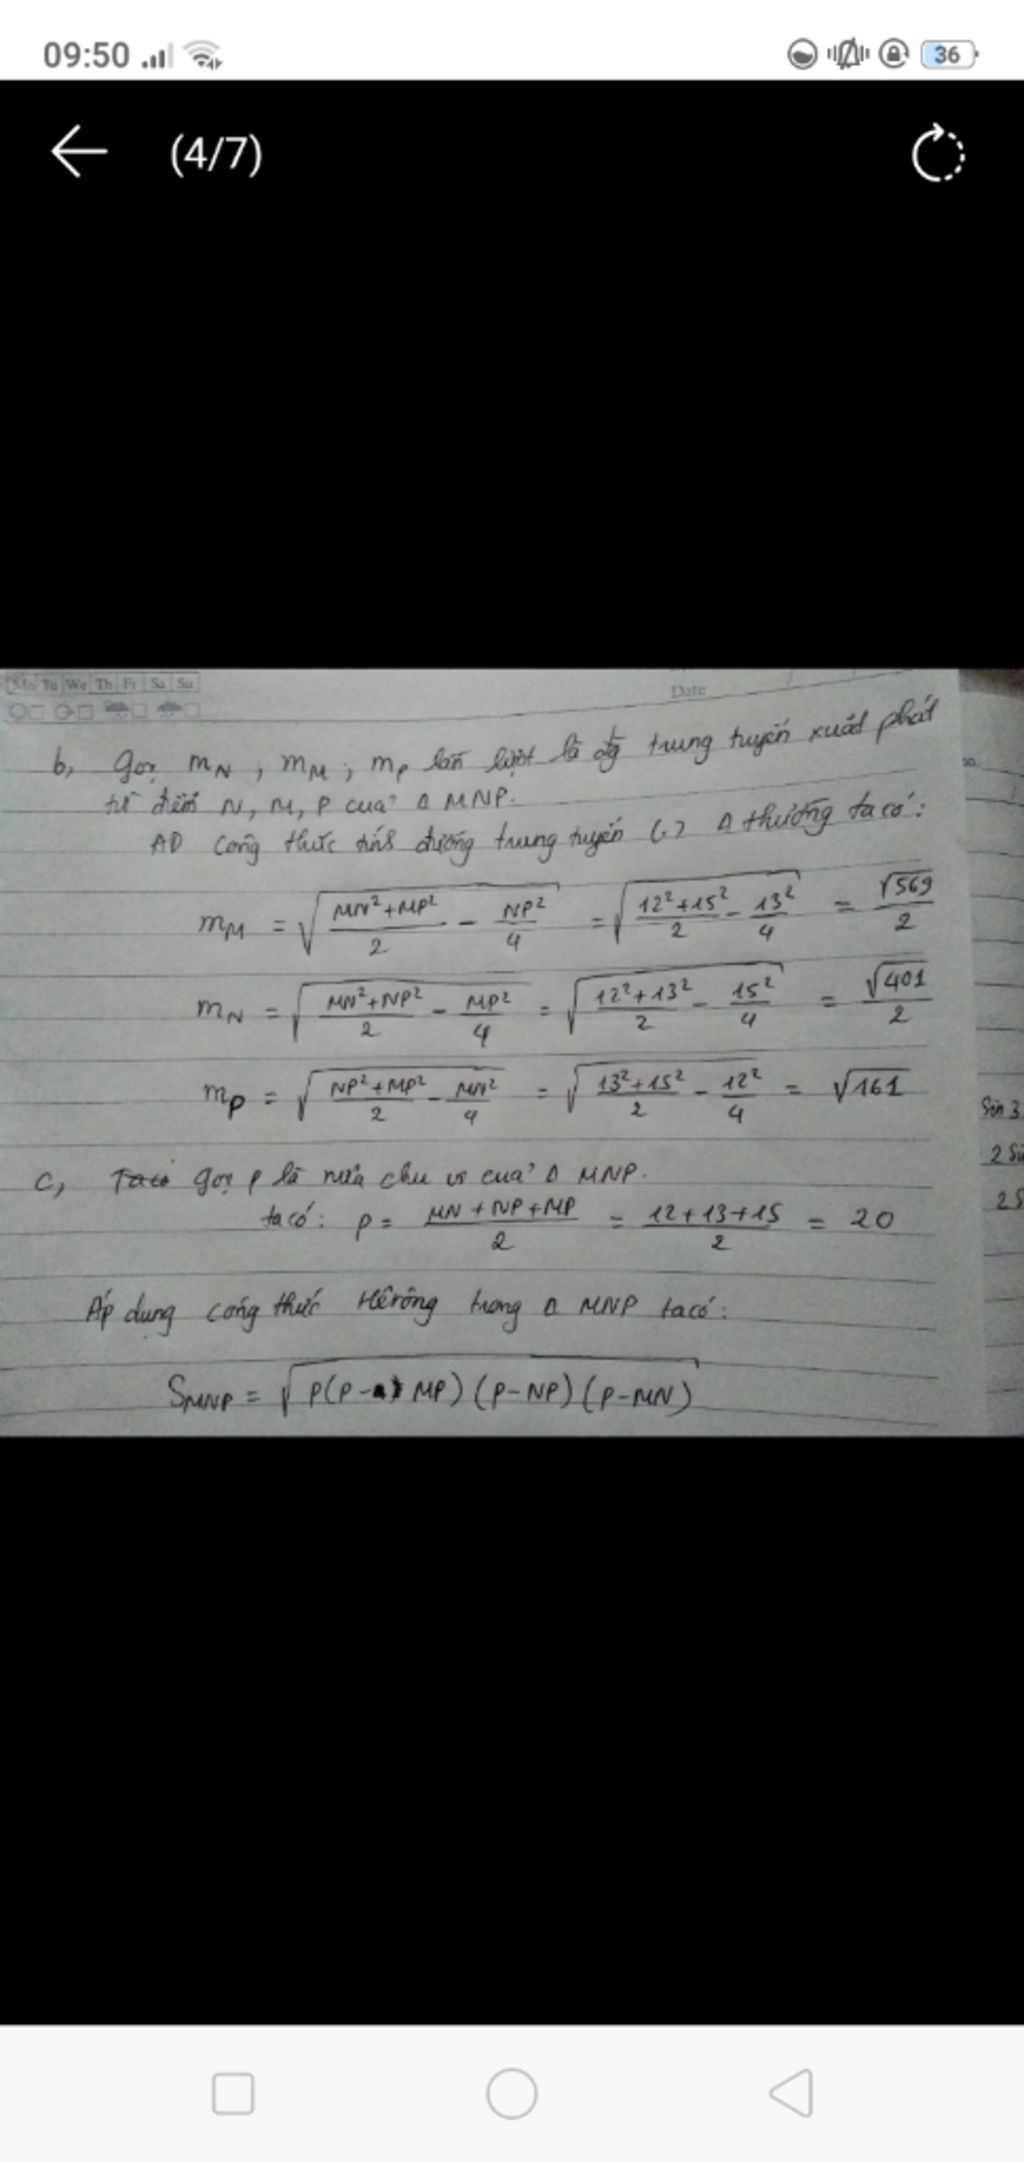 09:50
36
(4/7)
Mo Tu We Th Fr Sa Su
Date
b, Gọi m_N, m_M, m_P lần lượt là đg trung tuyến xuất phát
từ điểm N, M, P của Δ MNP.
AD công thức tính đường trung tuyến (.) Δ thường ta có:
m_M = √(MN²+MP²/2 - NP²/4) = √(12²+15²/2 - 13²/4) = √569/2
m_N = √(MN²+NP²/2 - MP²/4) = √(12²+13²/2 - 15²/4) = √401/2
m_P = √(NP²+MP²/2 - MN²/4) = √(13²+15²/2 - 12²/4) = √161
Sin 3
c, Gọi p là nửa chu vi của Δ MNP.
2 Si
ta có: p = MN+NP+MP/2 = 12+13+15/2 = 20
2S
Áp dụng công thức Hêrông trong Δ MNP ta có:
S_MNP = √P(P- MP)(P-NP)(P-MN)